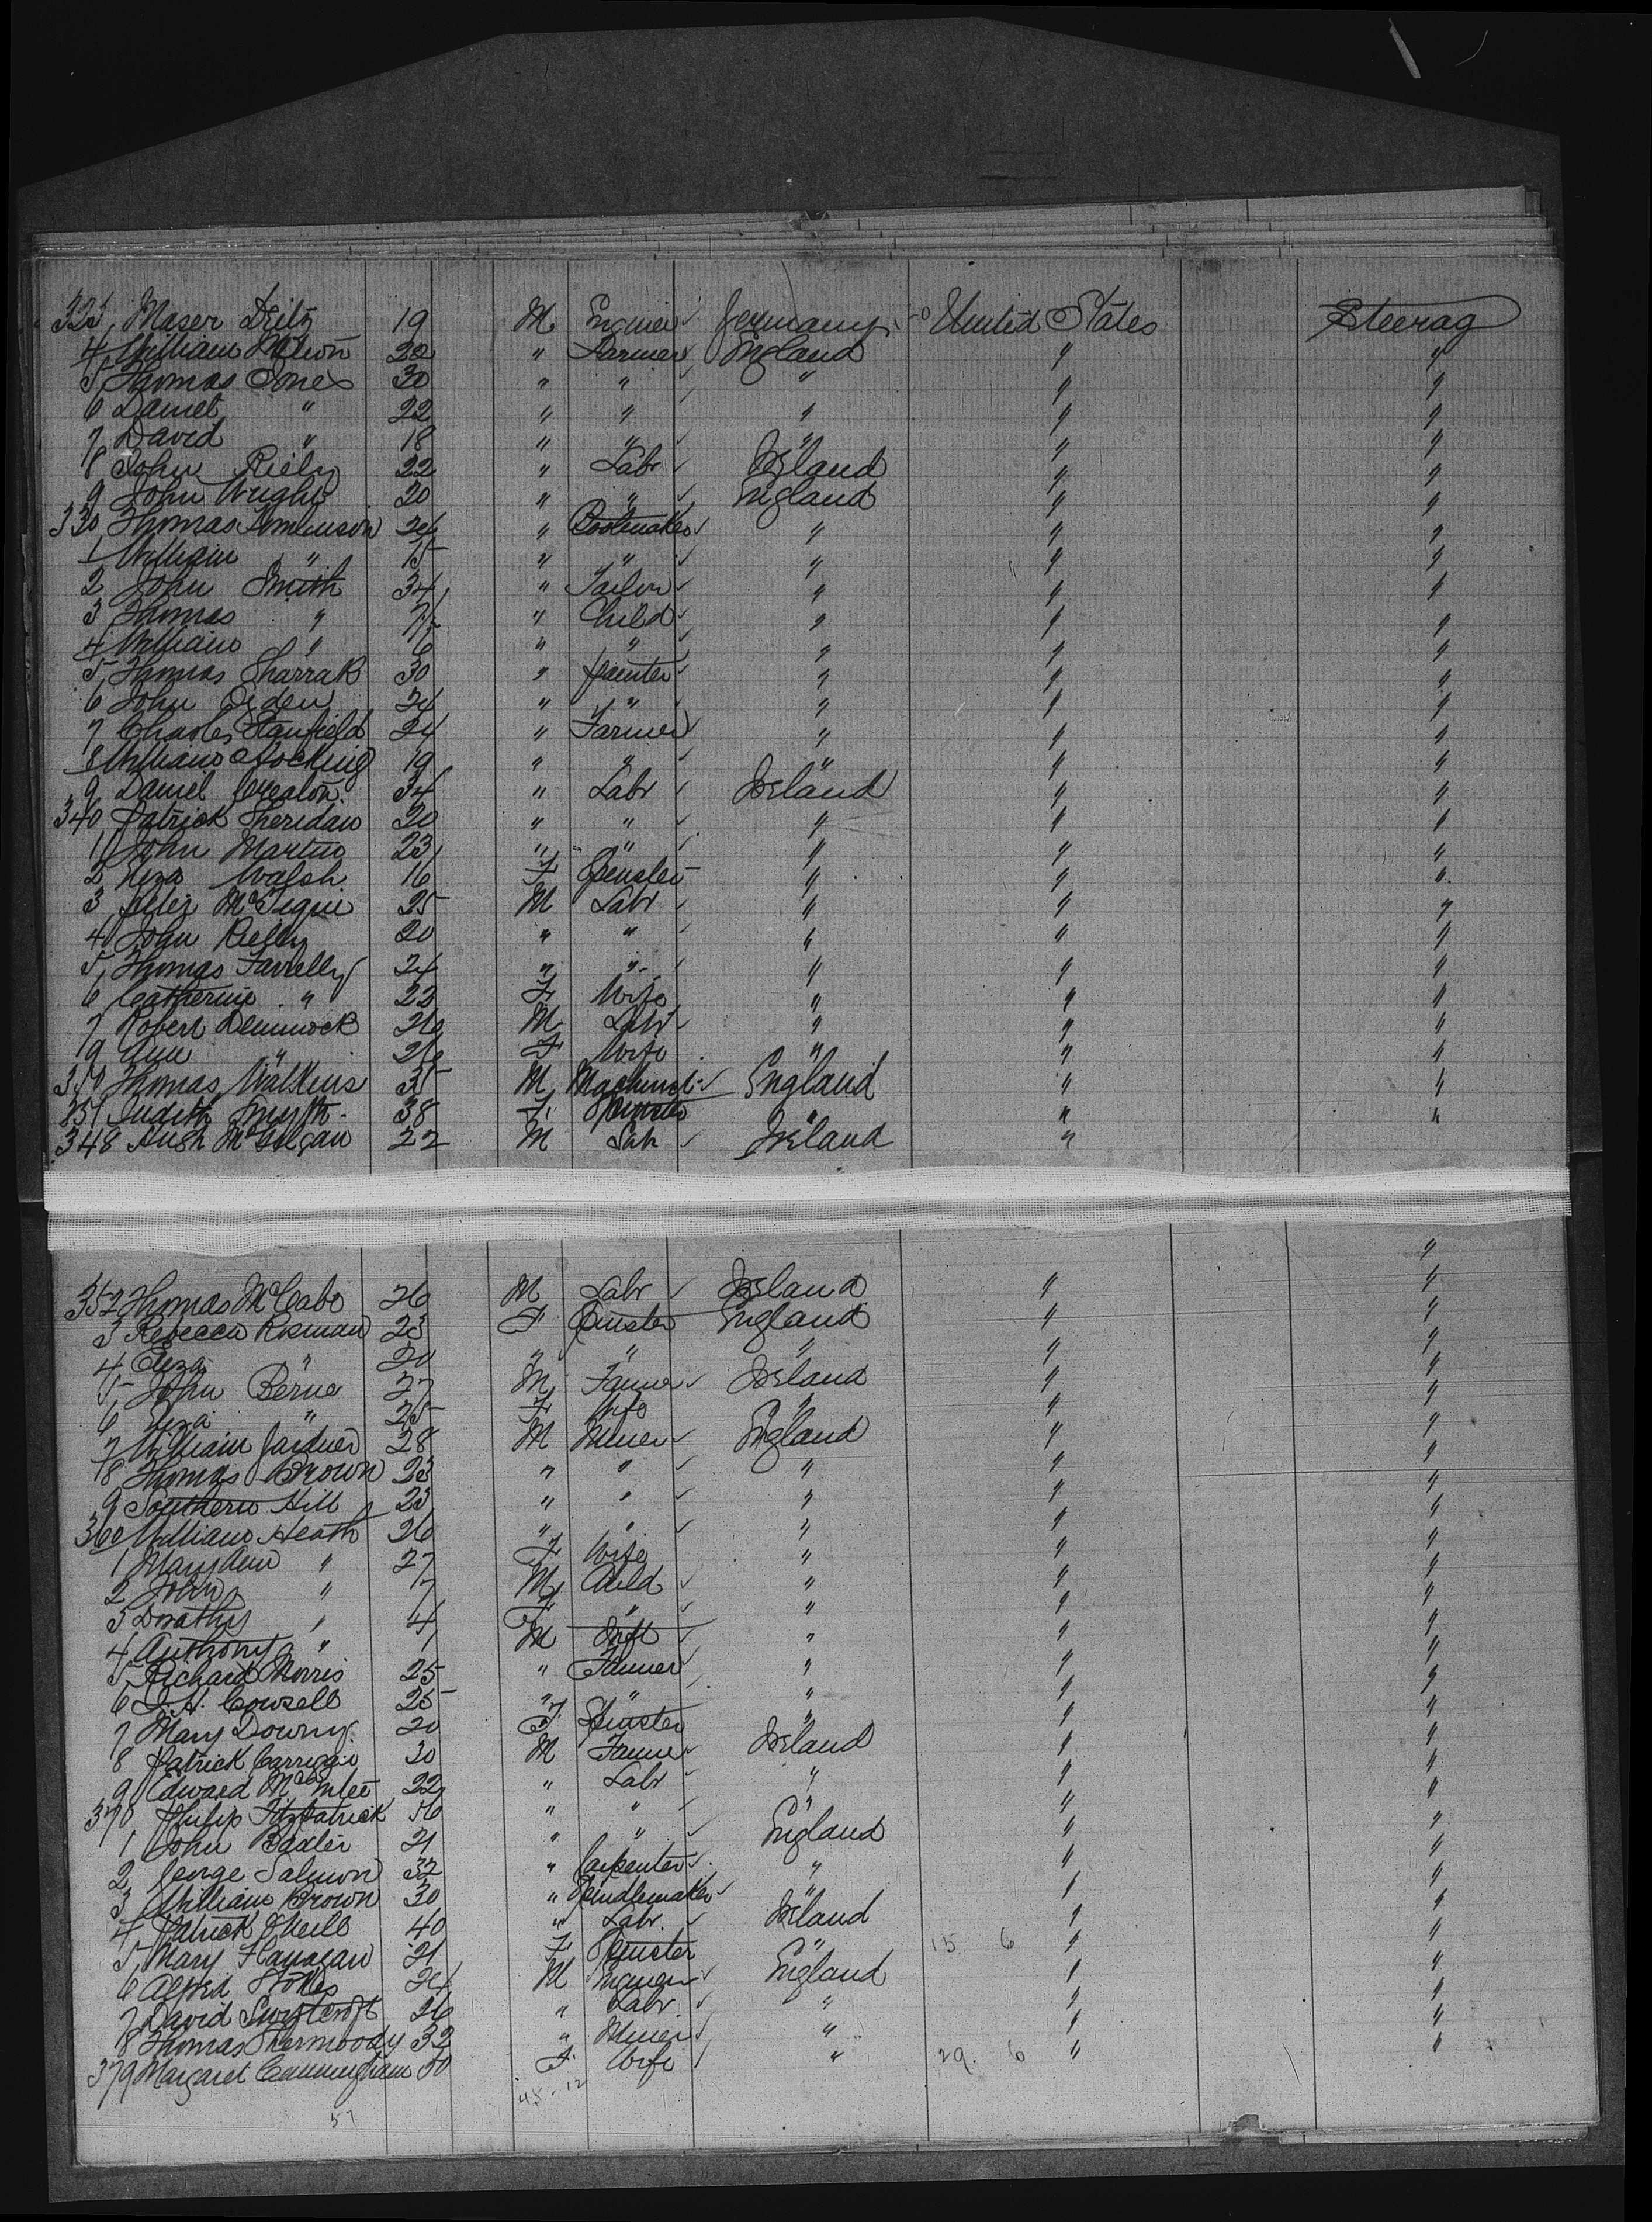 323 Maser Deitz 19 M Engineer Germany United States Steerag
4 William 20 " Farmer England " "
5 Thomas Jones 30 " " " " "
6 Daniel " 22 " " " " "
7 David " 18 " " " " "
8 John Riely 22 " Labr Ireland " "
9 John Wright 20 " " England " "
330 Thomas Tomlinson 26 " Bootmaker " " "
1 William " 15 " " " " "
2 John Smith 34 " Tailor " " "
3 Thomas " " Child " " "
4 William " 6 " " " " "
5 Thomas Sharrak 30 " Painter " " "
6 John Ogden 24 " " " " "
7 Charles Stanfield 24 " Farmer " " "
8 William Stocking 19 " " " " "
9 Daniel Crealon 34 " Labr Ireland " "
340 Patrick Sheridan 20 " " " " "
1 John Martin 23 " " " " "
2 Walsh 16 F Spinster " " "
3 Peter McTigue 25 M Labr " " "
4 John Rielly 20 " " " " "
5 Thomas Farrelly 24 " " " " "
6 Catherine " 22 F Wife " " "
7 Robert Demmock 26 M Labr " " "
9 Ann " 26 F Wife " " "
350 Thomas Watkins 35 M Machinst England " "
351 Judith Smyth 38 F Spinster " " "
348 Hugh McGilgan 22 M Labr Ireland "
"
352 Thomas McCabe 26 M Labr Ireland " "
3 Rebecca Rosman 23 F Spinster England " "
4 Eliza " 20 " " " " "
5 John Berne 27 M Farmer Ireland " "
6 Eliza " 25 F Wife " " "
7 William Gardner 28 M Miner England " "
8 Thomas Brown 23 " " " " "
9 Southern Hill 23 " " " " "
360 William Heath 26 " " " " "
1 Mary Ann " 27 F Wife " " "
2 John " 7 M Child " " "
3 Dorathy " 4 F " " " "
4 Anthony " 1 M Inft " " "
5 Richard Morris 25 " Farmer " " "
6 Cowsell 25 " " " " "
7 Mary Downy 20 F Spinster " " "
8 Patrick Carriggi 30 M Farmer Ireland " "
9 Edward 22 " Labr " " "
370 Philip Fitzpatrick 56 " " " " "
1 John Baxler 21 " " England " "
2 George Salmon 32 " Carpenter " " "
3 William Brown 30 " Spindlemaker " " "
4 Patrick ONeill 40 " Labr. Ireland " "
5 Mary Flanagan 21 F Spinster " 15 6 " "
6 Alfred Stokes 24 M Engineer England " "
7 David Swiftcroft 26 " Labr " " "
8 Thomas Shermoody 32 " Miner " " "
379 Margaret Cunningham 50 F Wife " 29. 6 " "
45-12
57